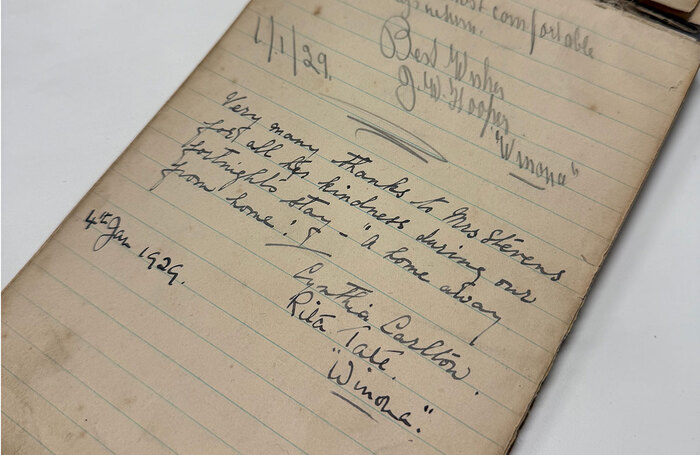 most comfortable
1/1/29.
Best Wishes
"Winona"
Very many thanks to Mrs Stevens
for all her kindness during our
fortnight's stay – "a home away
from home"!
4th Jan 1929.
Cynthia Carlton.
Rita Tate.
"Winona".